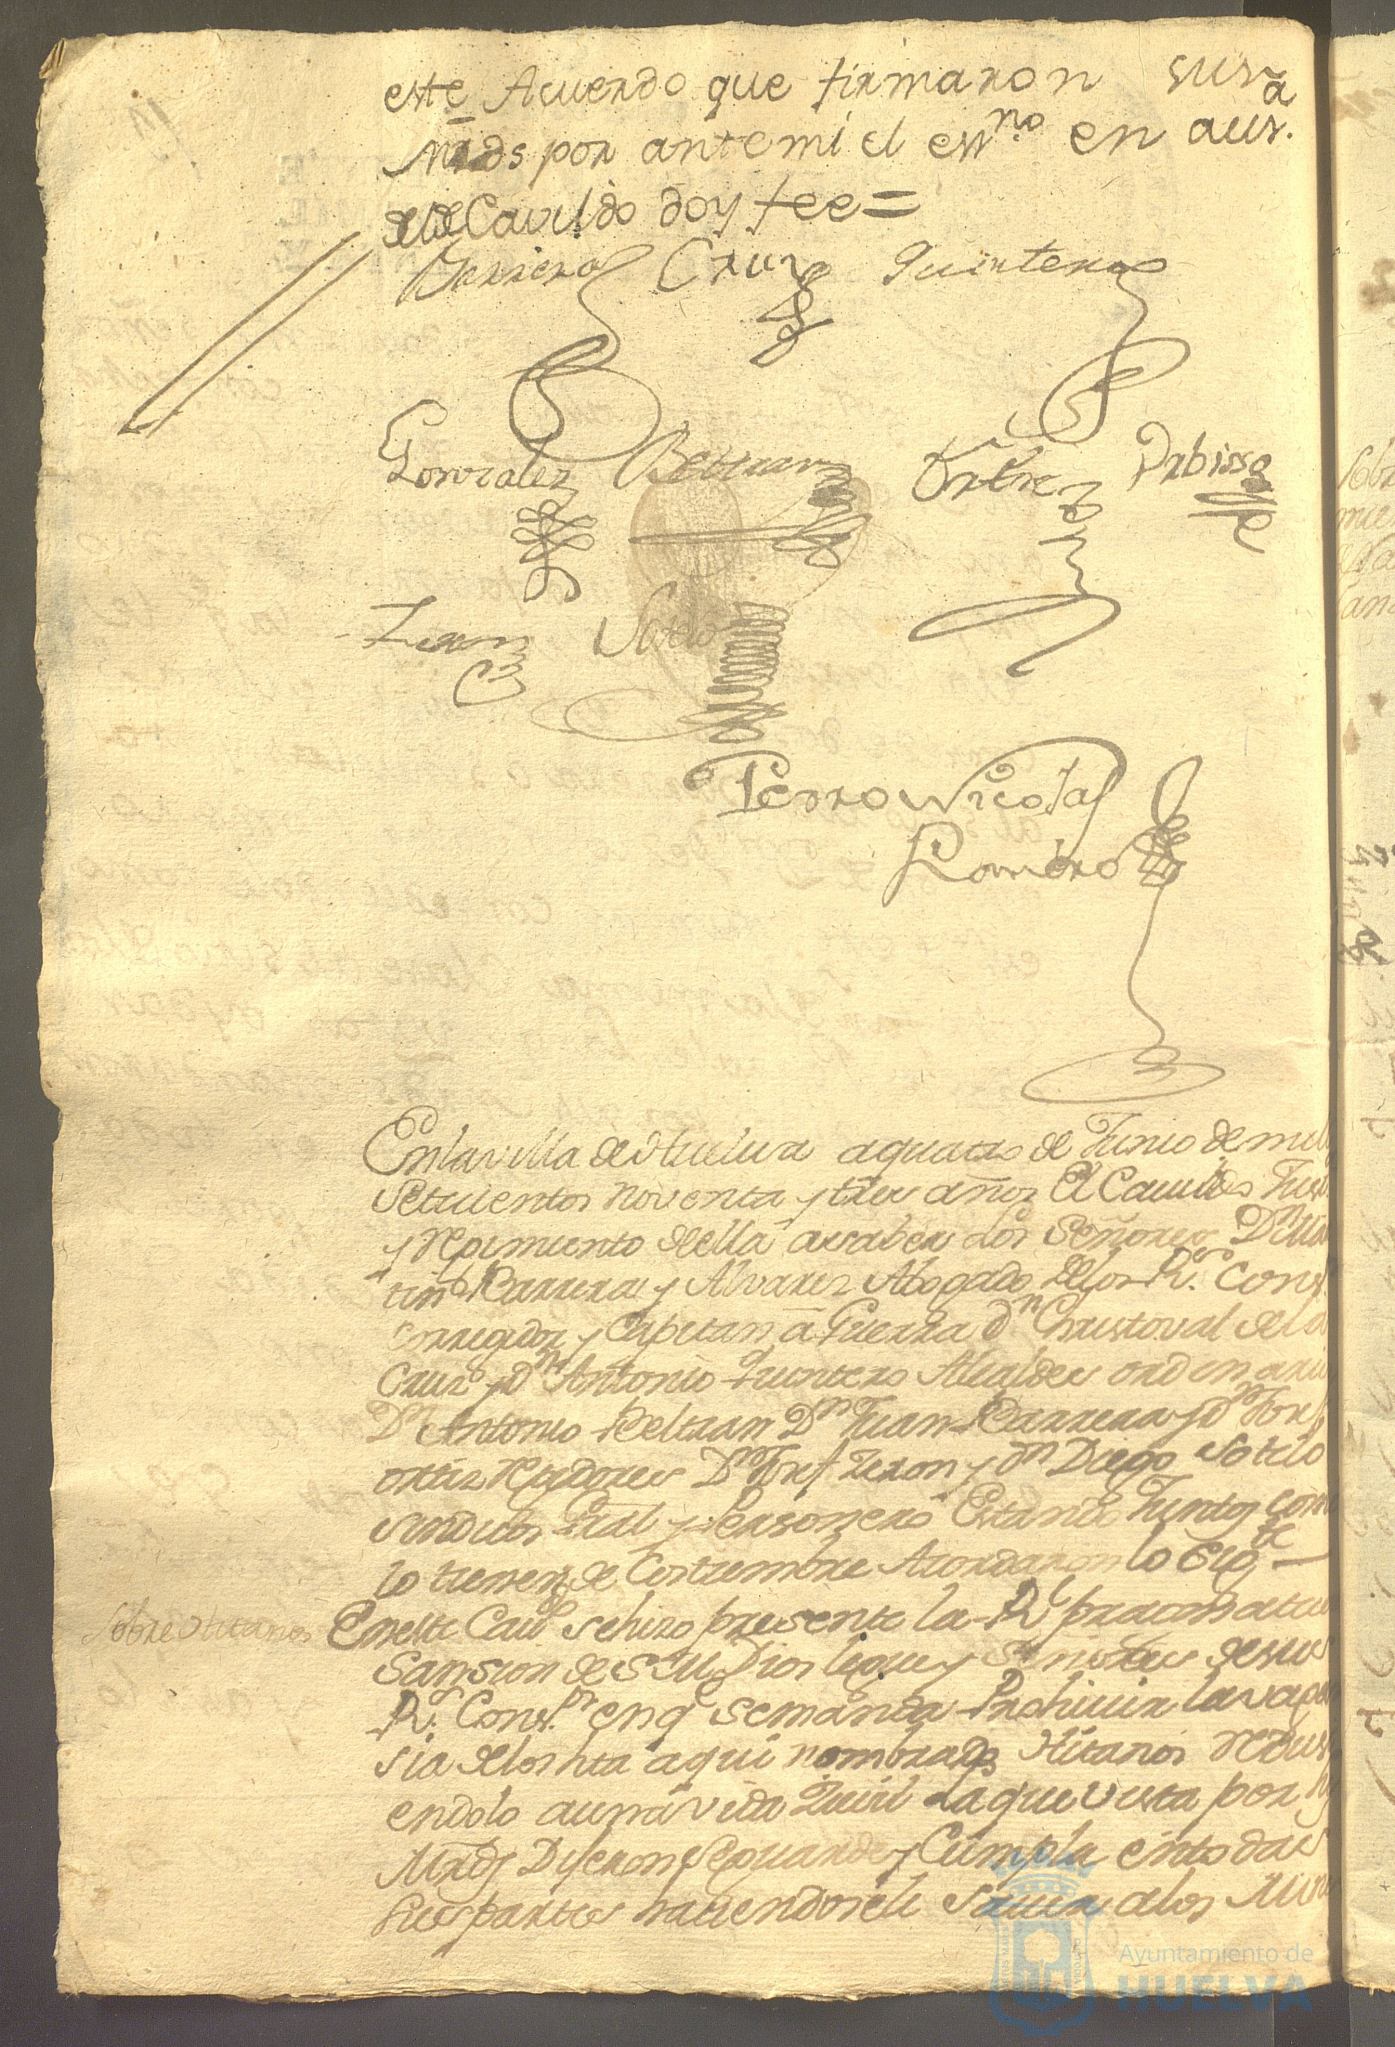 este Acuerdo que firmaron sus
Mrds por antemi el essno en aus.a
de este Cavildo doy fee =
Barrera Cruz Quintero
Gonzalez Beltran Ortiz
Zeron Sotelo
Pedro Nicolas
Romero
En la villa de Huelva a quatro de Junio de mil
Setecientos Noventa y tres años El Cavildo Just
y Regimiento de ella a saver los Señores Dn
tin Barrera y Alvarez Abogado de los Rs. Cons.
corregidor y Capitan a Guerra dn Christoval de la
Cruz y dn Antonio Quintero Alcaldes ordinari
Dn Antonio Beltran Dn Juan Barrera y dn Josef
ortiz Regidores Dn Josef Zeron y dn Diego Sotelo
sindicos Gral y Personero Estando Juntos com
lo tienen de Costumbre Acordaron lo Sigte
Sobre Gitanos
En este Cavo se hizo presente la Rl pracmatica
Sansion de S.M. Dios le gue y Señores de sus
Rs. Cons. en q se manda Prohivir la vagan
sia de los hta aqui nombrados Gitanos redus
endolo a una vida Zivil la que vista por
Mrds Dijeron se guarde y Cumpla en todas
sus partes haciendosele saver a los
Ayuntamiento de
HUELVA